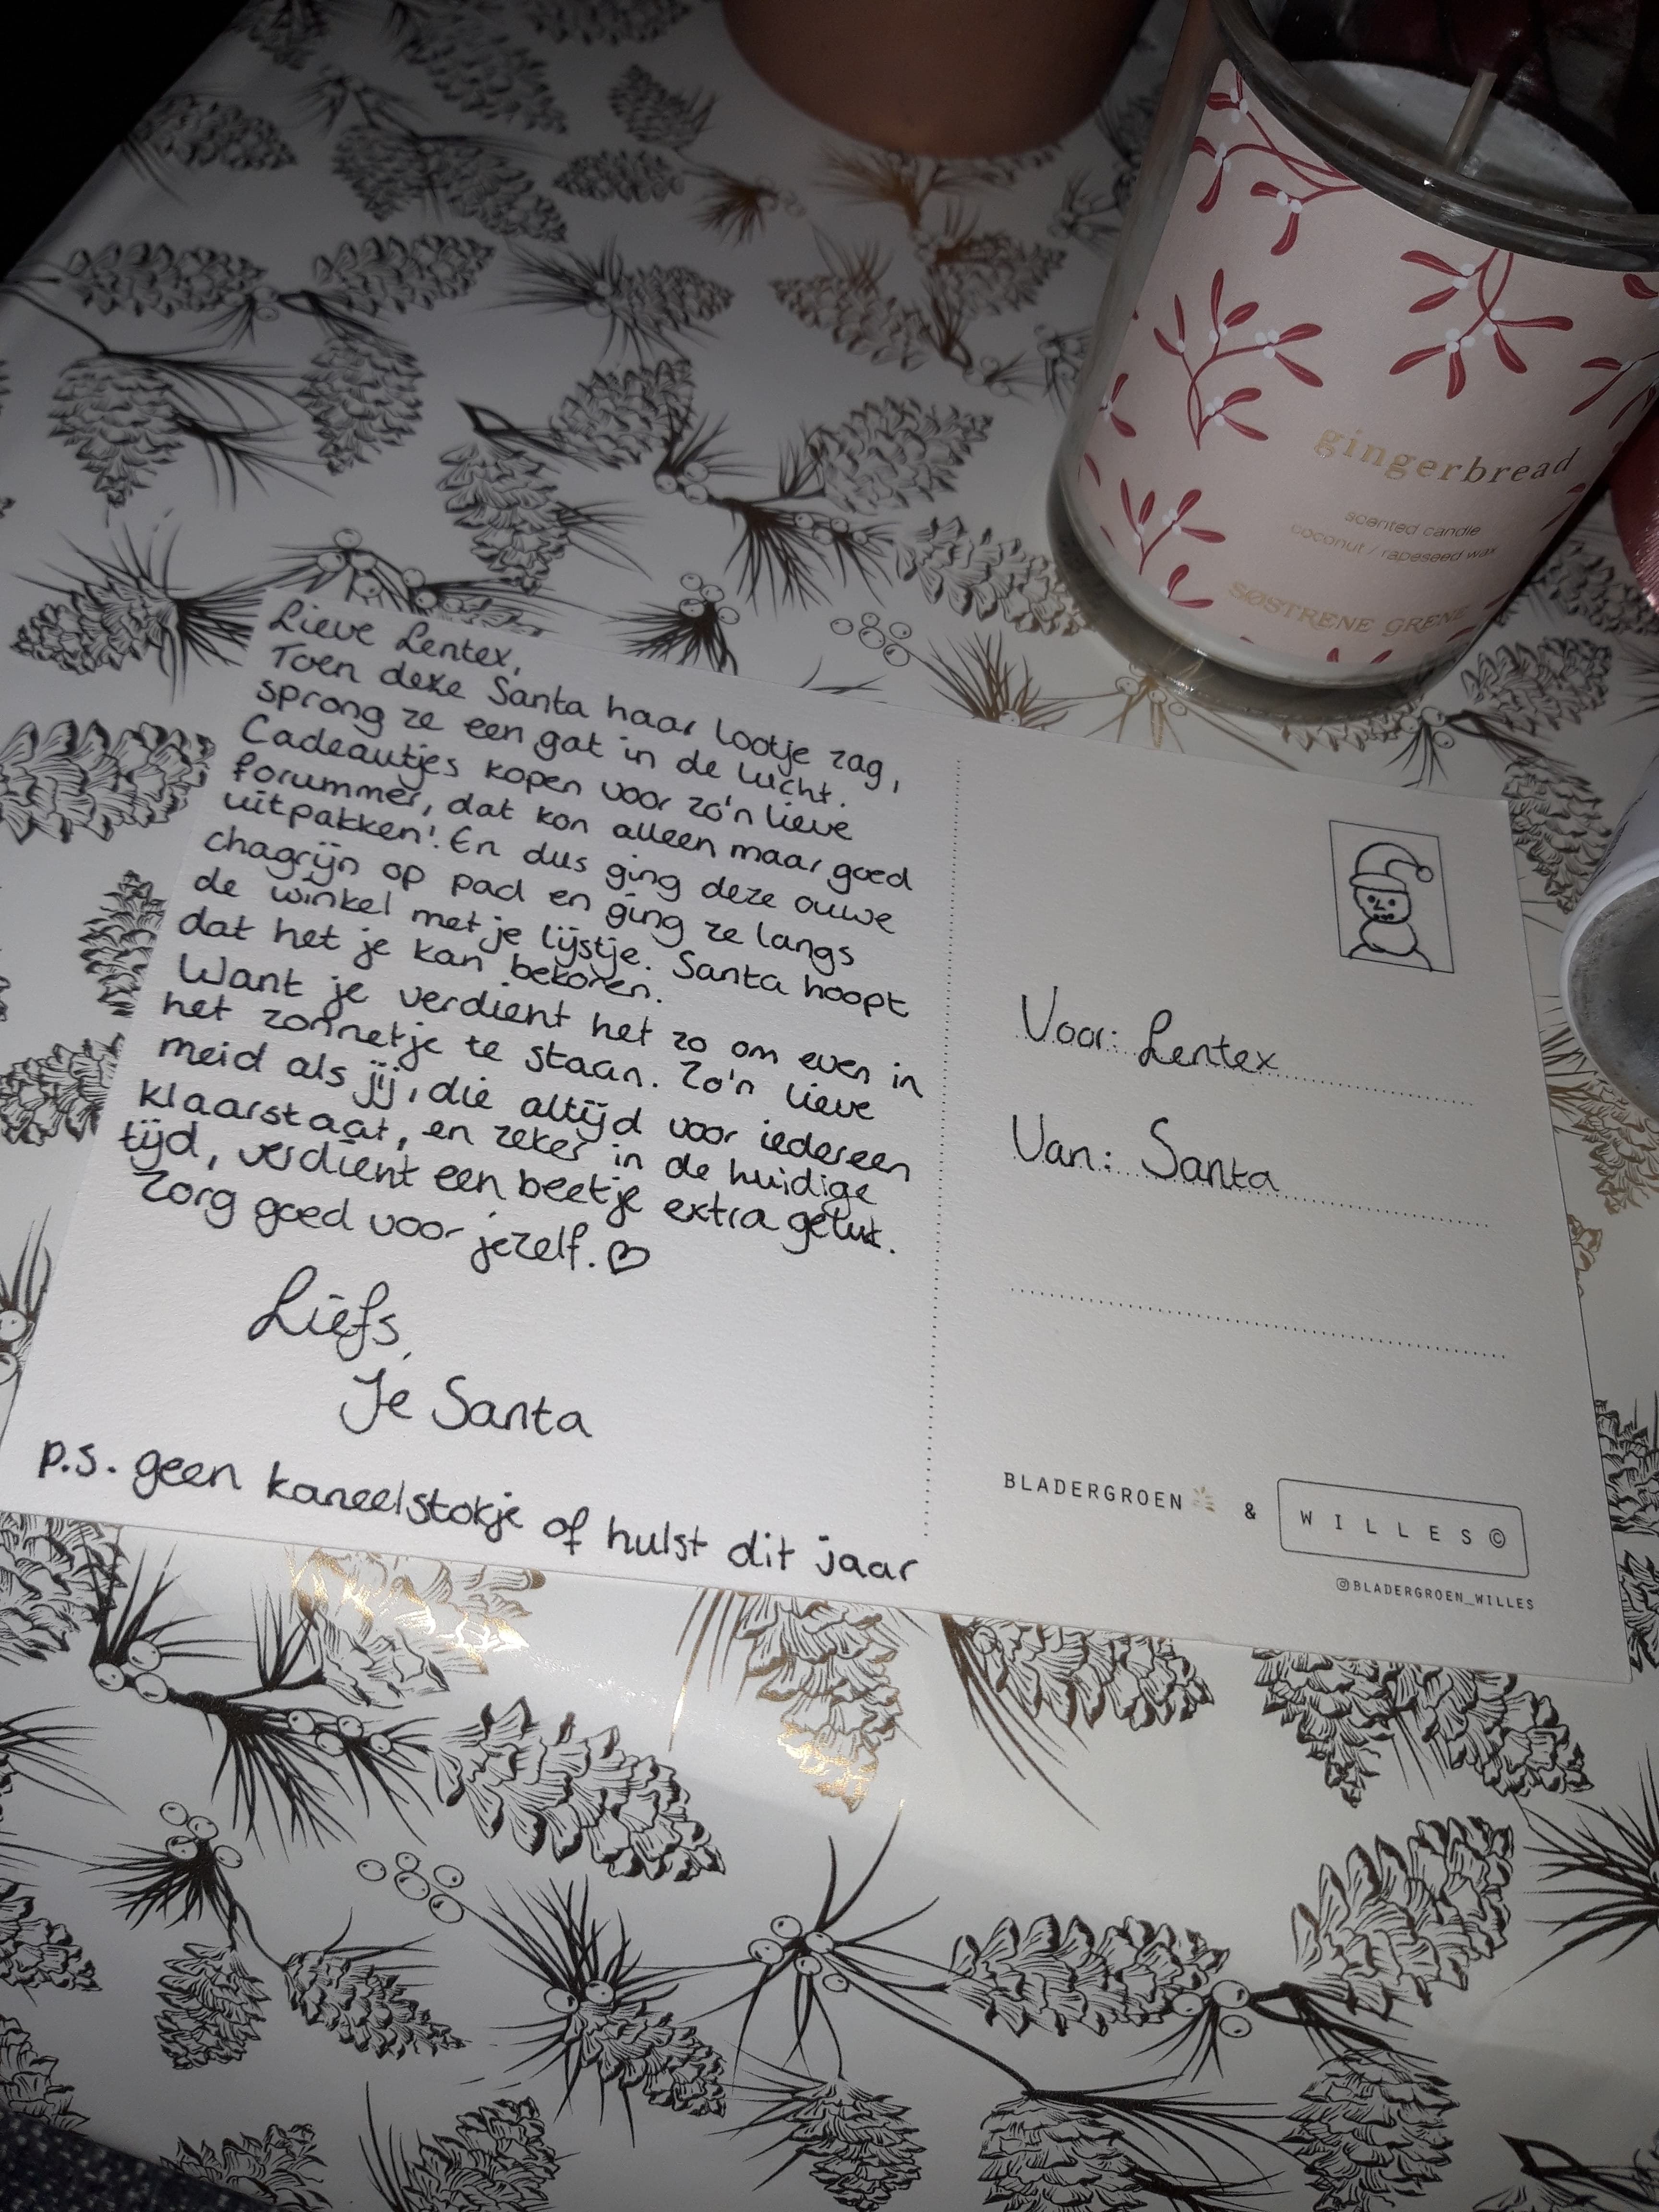 gingerbread
scented candle
coconut / rapeseed wax
SØSTRENE GRENE
Lieve Lentex,
Toen deze Santa haar lootje zag,
sprong ze een gat in de lucht.
Cadeautjes kopen voor zo'n lieve
forummer, dat kon alleen maar goed
uitpakken! En dus ging deze ouwe
chagrijn op pad en ging ze langs
de winkel met je lijstje. Santa hoopt
dat het je kan bekoren.
Want je verdient het zo om even in
het zonnetje te staan. Zo'n lieve
meid als jij, die altijd voor iedereen
klaarstaat, en zeker in de huidige
tijd, verdient een beetje extra geluk.
Zorg goed voor jezelf. ♡
Liefs,
Je Santa
p.s. geen kaneelstokje of hulst dit jaar
Voor: Lentex
Van: Santa
BLADERGROEN & WILLES©
@BLADERGROEN_WILLES